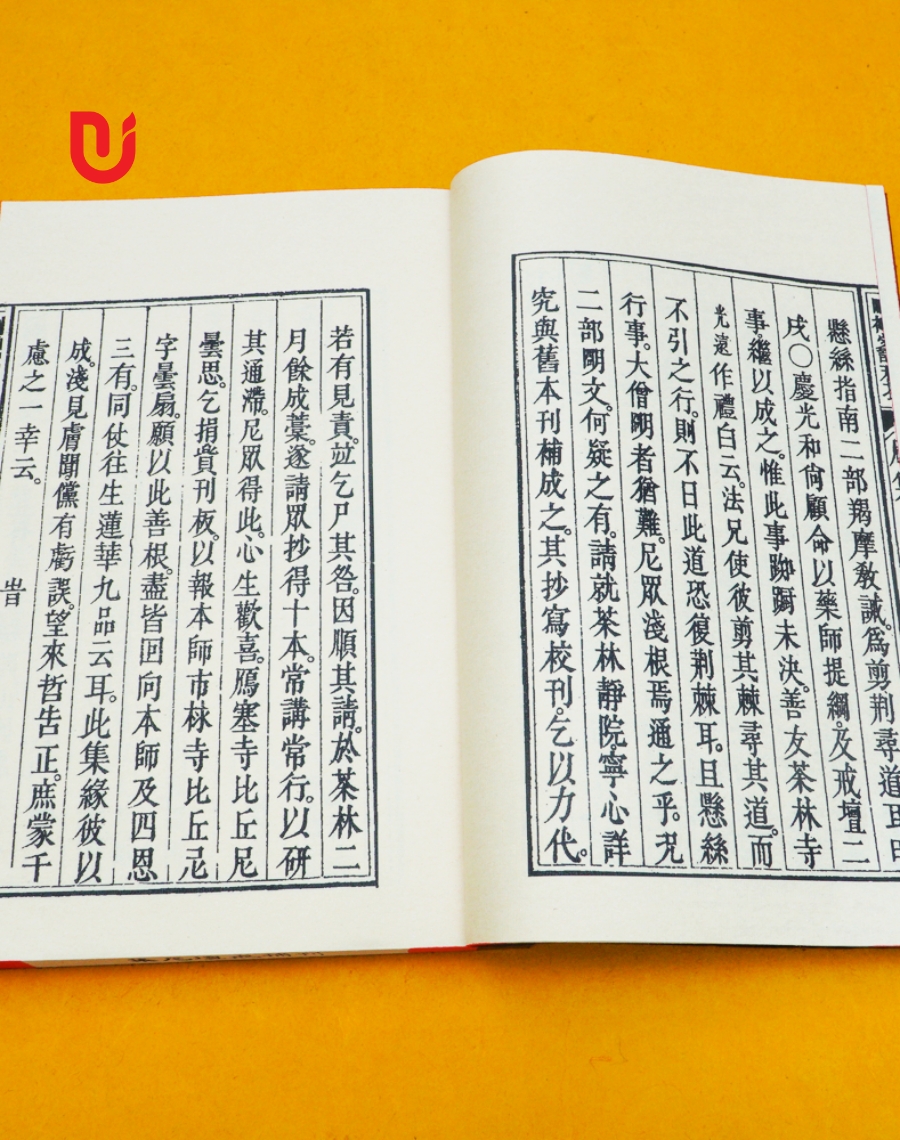 懸絲指南二部羯摩教誡。爲剪荆尋道
戌〇慶光和尙願命以藥師提綱。及戒壇二
事。繼以成之。惟此事踟躕未決。善友茶林寺
光遠作禮白云。法兄使彼剪其棘尋其道。而
不引之行。則不日此道恐復荆棘耳。且懸絲
行事。大僧明者猶難。尼眾淺根焉通之乎。況
二部明文。何疑之有。請就茶林靜院。寧心詳
究與舊本刊補成之。其抄寫校刊。乞以力代。
若有見責。竝乞尸其咎。因順其請。於茶林二
月餘成藁。遂請眾抄得十本。常講常行。以研
其通滯。尼眾得此。心生歡喜。鴈塞寺比丘尼
曇思。乞捐貲刊板。以報本師市林寺比丘尼
字曇扇。願以此善根。盡皆回向本師及四恩
三有。同仗往生蓮華九品云耳。此集緣彼以
成。淺見膚聞。儻有虧誤。望來哲吿正。庶蒙千
慮之一幸云。